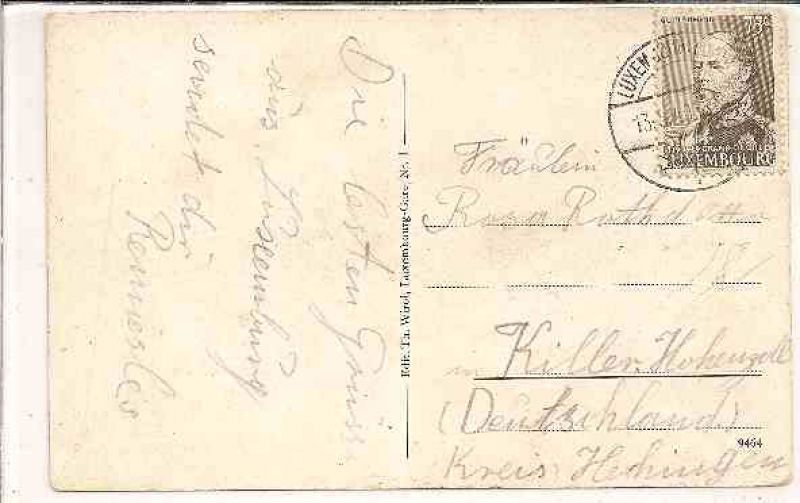 Die besten Grüsse
aus Luxemburg
sendet dir
Edit. Th. Wirol, Luxembourg-Gare, Nr. 1
LUXEMBOURG
LUXEMBOURG
Fräulein
Rosa
in Killer, Hohenzoll
(Deutschland)
9464
Kreis Hechingen